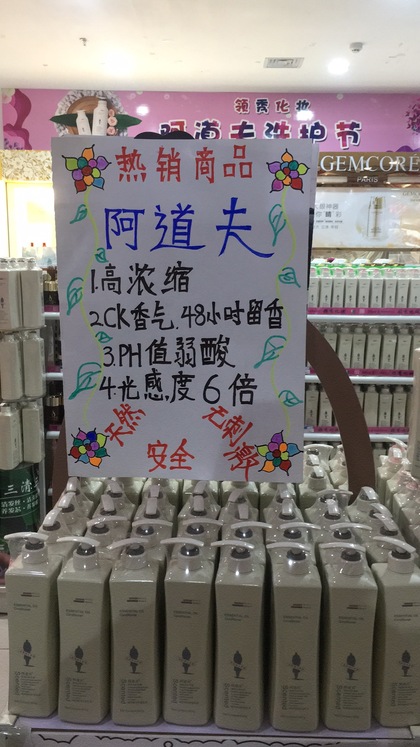 领秀化妆
阿道夫洗护节
GEMCORE
PARIS
热销商品
阿道夫
1.高浓缩
2.CK香气.48小时留香
3.PH值弱酸
4.光感度6倍
天然
安全
无刺激